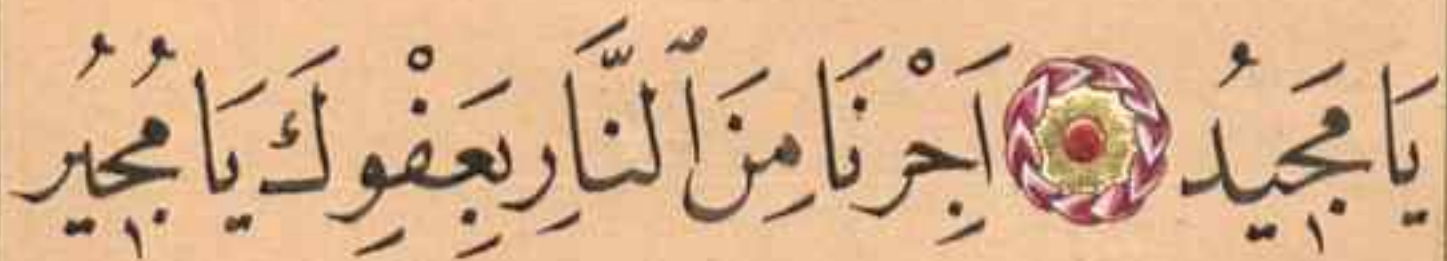 يَا مَجِيدُ اَجِرْنَا مِنَ ٱلنَّارِ بِعَفْوِكَ يَا مُجِيرُ